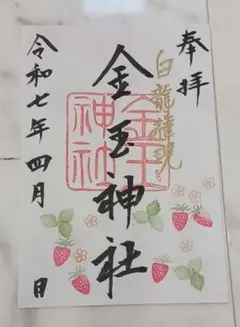 奉拝
白龍権現
金玉神社
金玉神社
令和七年四月 日